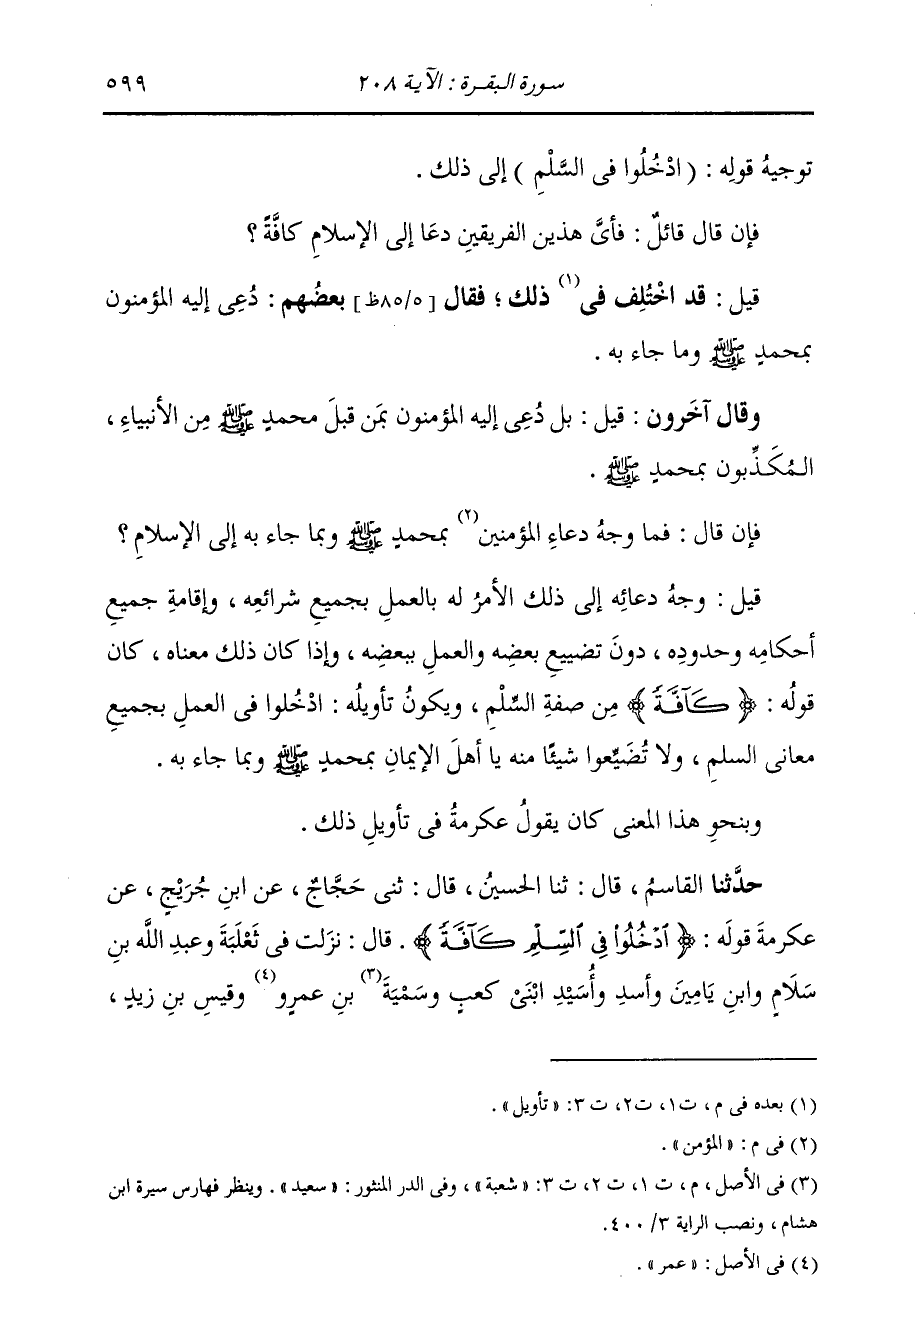 سورة البقرة : الآية ٢٠٨ ٥٩٩
توجيهُ قولِه : ( ادْخُلُوا فى السَّلْمِ ) إلى ذلك .
فإن قال قائلٌ : فأىَّ هذين الفريقينِ دعَا إلى الإسلامِ كافَّةً ؟
قيل : قد اخْتُلِف فى(١) ذلك ؛ فقال [٨٥/٥ظ] بعضُهم : دُعِى إليه المؤمنون
بمحمدٍ ﷺ وما جاء به .
وقال آخَرون : قيل : بل دُعِى إليه المؤمنون بمَن قبلَ محمدٍ ﷺ مِن الأنبياءِ ،
المُكَذِّبون بمحمدٍ ﷺ .
فإن قال : فما وجهُ دعاءِ المؤمنين(٢) بمحمدٍ ﷺ وبما جاء به إلى الإسلامِ ؟
قيل : وجهُ دعائِه إلى ذلك الأمرُ له بالعملِ بجميعِ شرائعِه ، وإقامةِ جميعِ
أحكامِه وحدودِه ، دونَ تضييعِ بعضِه والعملِ ببعضِه ، وإذا كان ذلك معناه ، كان
قولُه : ﴿ كَآفَّةً ﴾ مِن صفةِ السِّلْمِ ، ويكونُ تأويلُه : ادْخُلوا فى العملِ بجميعِ
معانى السلمِ ، ولا تُضَيِّعوا شيئًا منه يا أهلَ الإيمانِ بمحمدٍ ﷺ وبما جاء به .
وبنحوِ هذا المعنى كان يقولُ عكرمةُ فى تأويلِ ذلك .
حدَّثنا القاسمُ ، قال : ثنا الحسينُ ، قال : ثنى حَجَّاجٌ ، عن ابنِ جُرَيْجٍ ، عن
عكرمةَ قولَه : ﴿ ٱدْخُلُوا۟ فِى ٱلسِّلْمِ كَآفَّةً ﴾ . قال : نزَلت فى ثَعْلَبَةَ وعبدِ اللهِ بنِ
سَلَامٍ وابنِ يَامِينَ وأسدِ وأُسَيْدِ ابْنَىْ كعبٍ وسَمْيَةَ(٣) بنِ عمرٍو(٤) وقيسِ بنِ زيدٍ ،
(١) بعده فى م ، ت١، ت٢، ت٣: «تأويل» .
(٢) فى م : «المؤمن» .
(٣) فى الأصل ، م ، ت ١، ت ٢، ت ٣: «شعبة» ، وفى الدر المنثور : «سعيد» . وينظر فهارس سيرة ابن
هشام ، ونصب الراية ٣/ ٤٠٠.
(٤) فى الأصل : «عمر» .